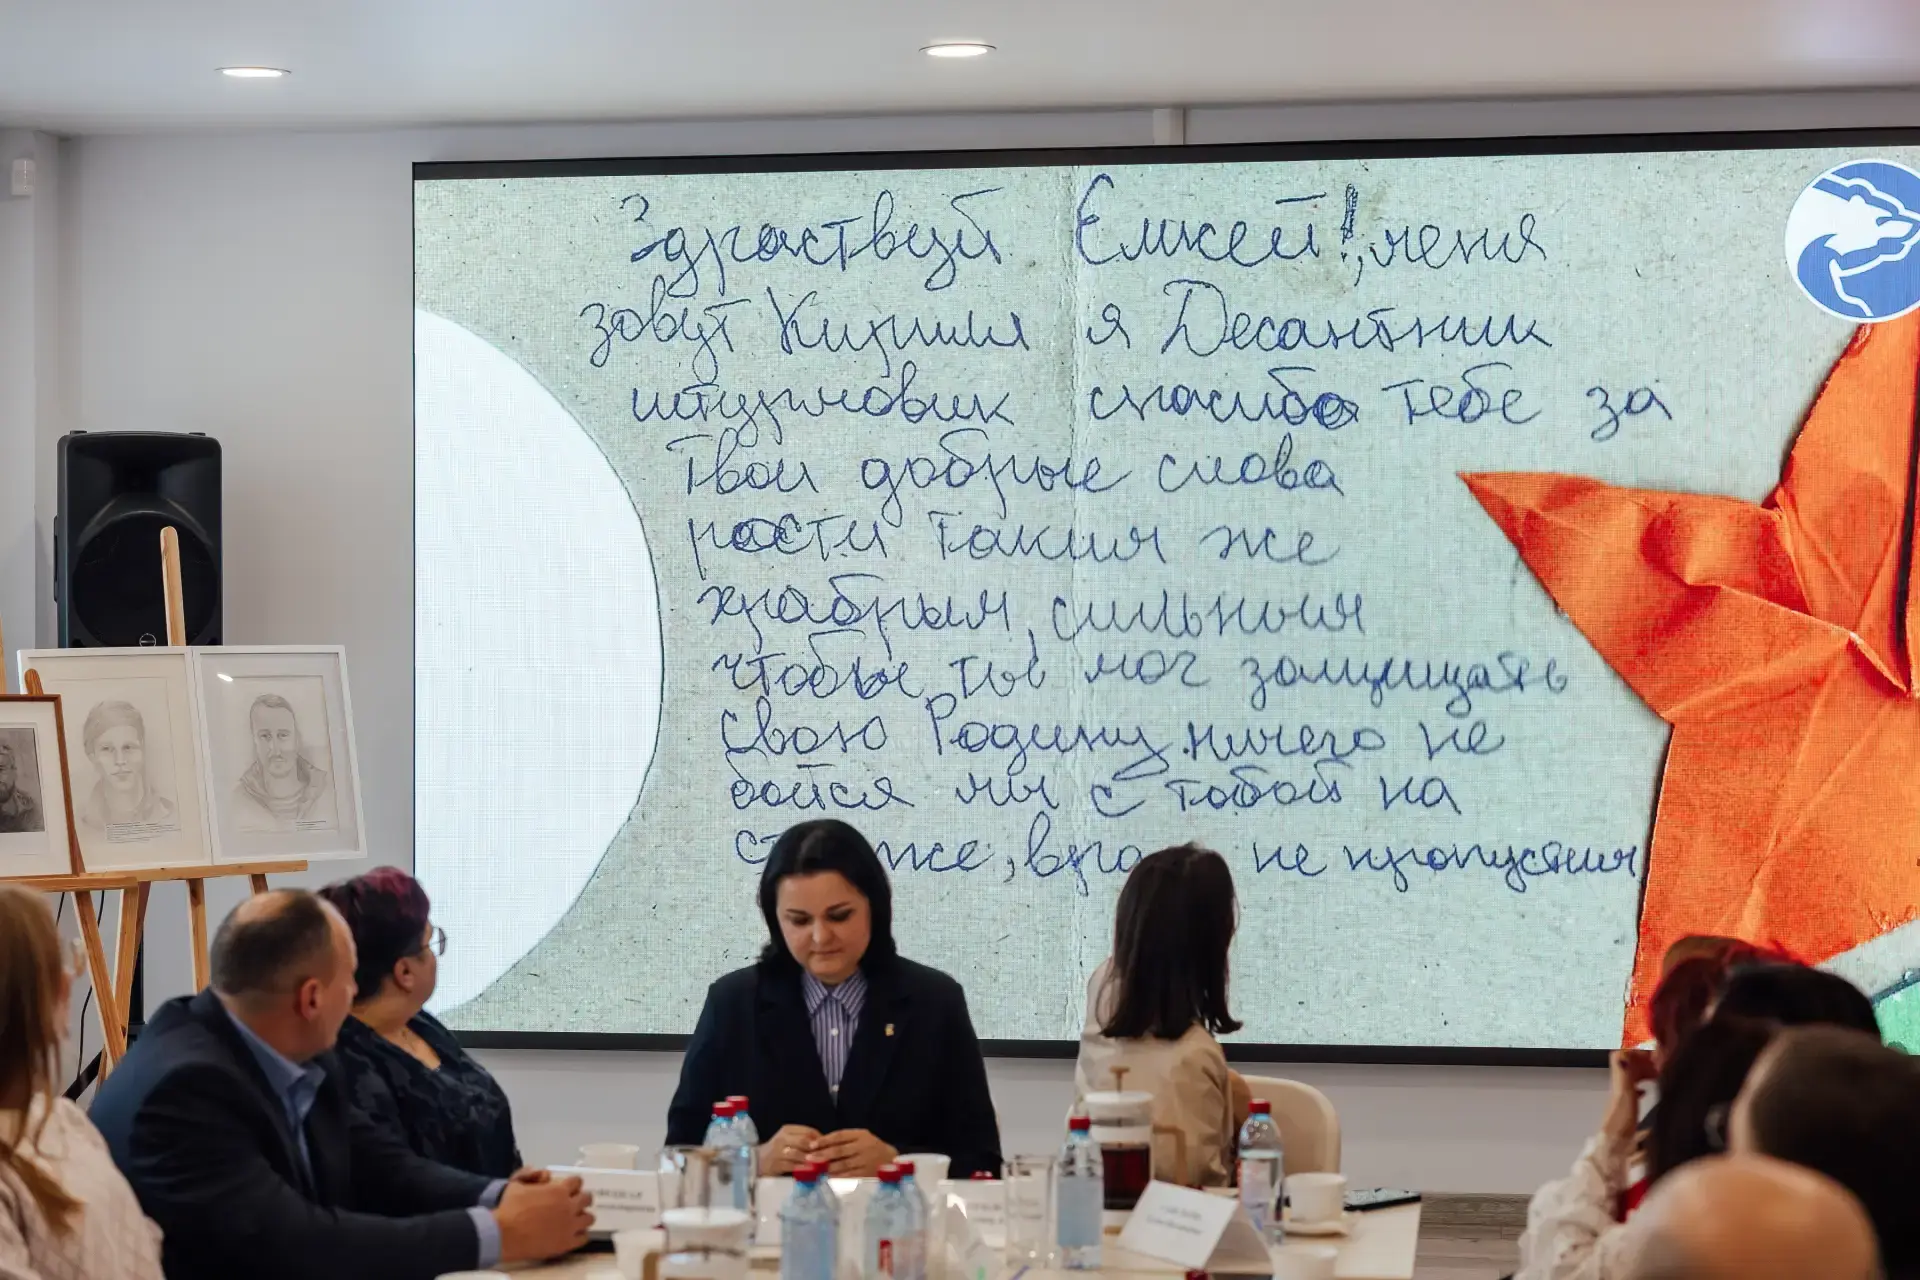 Здраствуй Емкей!, меня
зовут Кирилл я Десантник
штурмовик спасибо тебе за
твои добрые слова
расти таким же
храбрым, сильным
чтобы ты мог защищать
свою Родину ничего не
бойся мы с тобой на
не пропустим